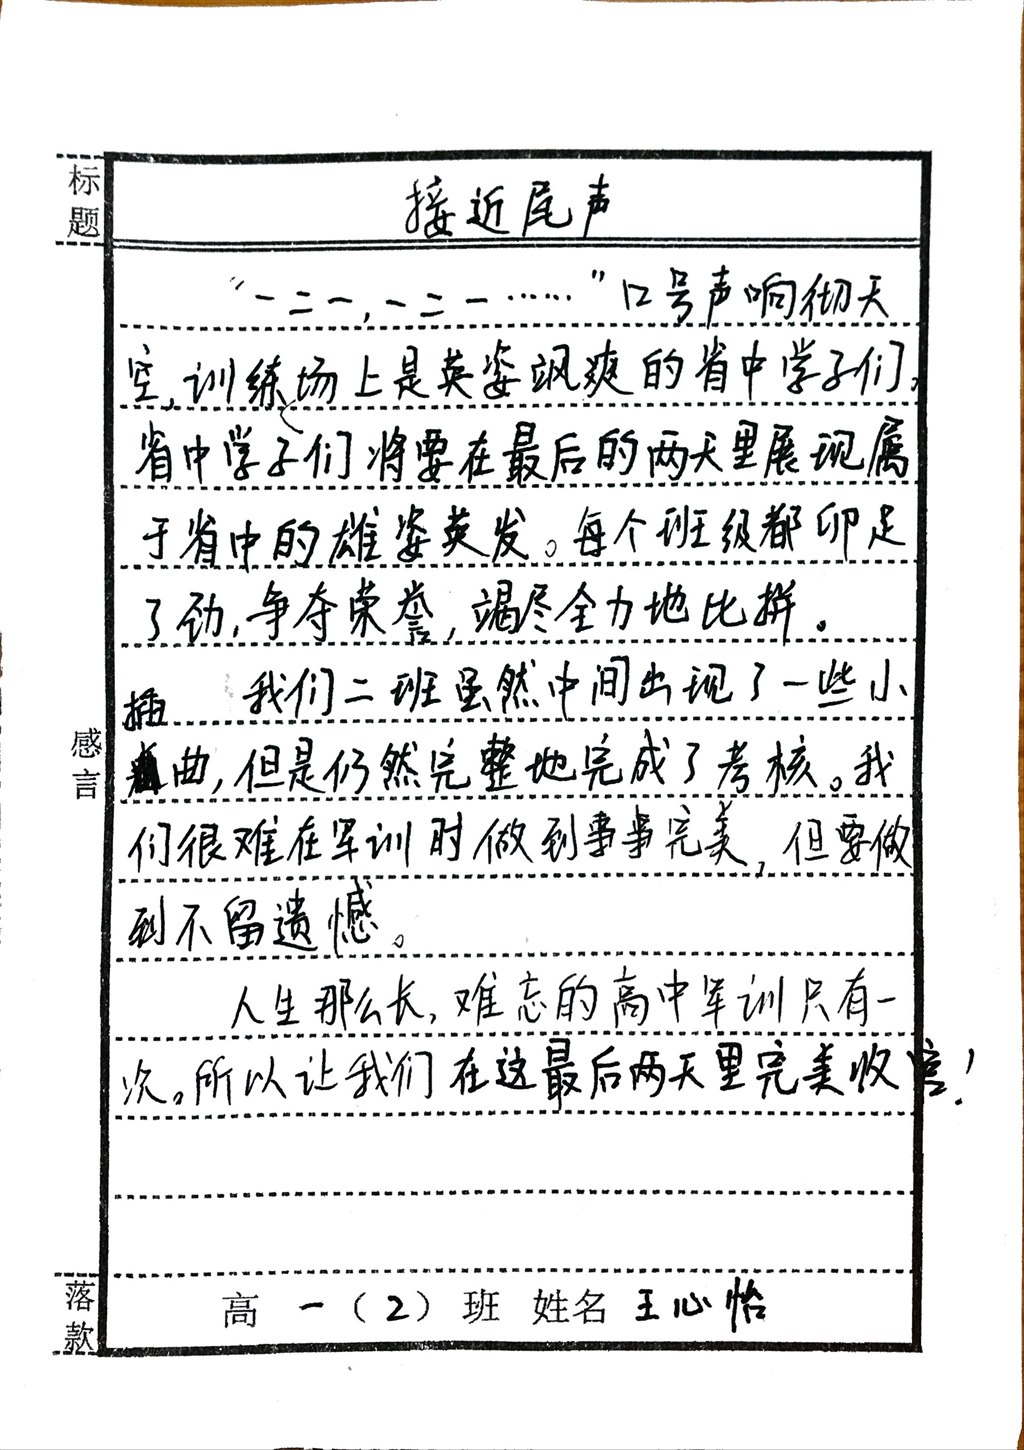 标题
接近尾声
“一二一，一二一……”口号声响彻天
空，训练场上是英姿飒爽的省中学子们。
省中学子们将要在最后的两天里展现属
于省中的雄姿英发。每个班级都卯足
了劲，争夺荣誉，竭尽全力地比拼。
我们二班虽然中间出现了一些小
插曲，但是仍然完整地完成了考核。我
们很难在军训时做到事事完美，但要做
到不留遗憾。
人生那么长，难忘的高中军训只有一
次。所以让我们在这最后两天里完美收官！
感言
落款
高一（2）班 姓名 王心怡